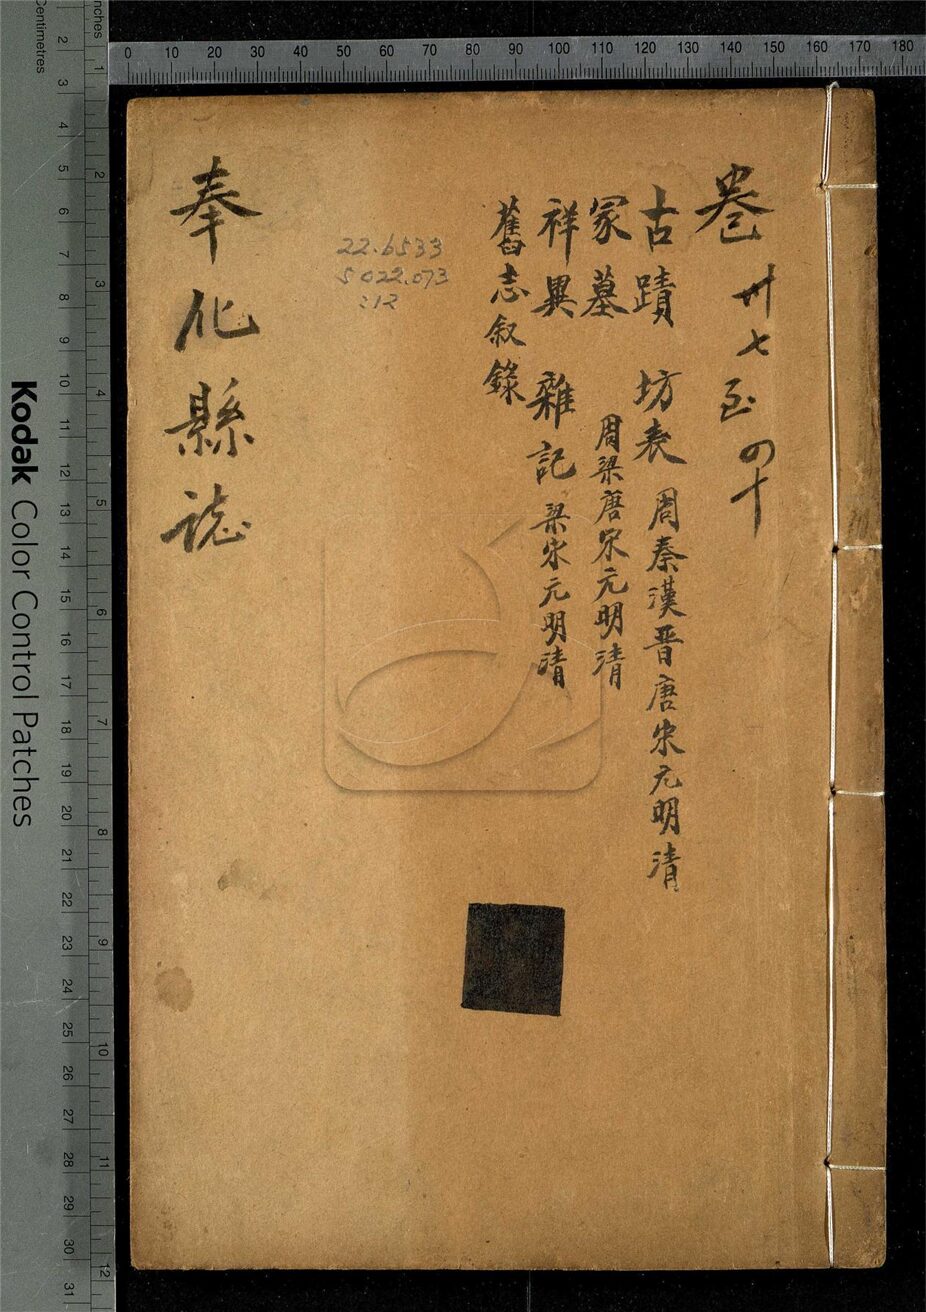 卷 卅七至四十
古蹟 坊表 周秦漢晋唐宋元明清
冢墓 周梁唐宋元明清
祥異 雜記 梁宋元明清
舊志叙錄
奉化縣誌
22.6533
5022.073
:12
0 10 20 30 40 50 60 70 80 90 100 110 120 130 140 150 160 170 180
Centimetres
2 3 4 5 6 7 8 9 10 11 12 13 14 15 16 17 18 19 20 21 22 23 24 25 26 27 28 29 30 31
nches
1 2 3 4 5 6 7 8 9 10 11 12
Kodak Color Control Patches